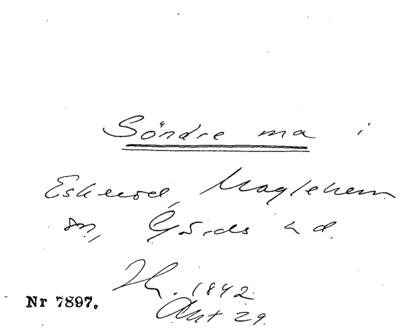 Söndre ma i
Eskerod, Maglehem
sn, Gärds hd.
1842
Akt 29
Nr 7897.